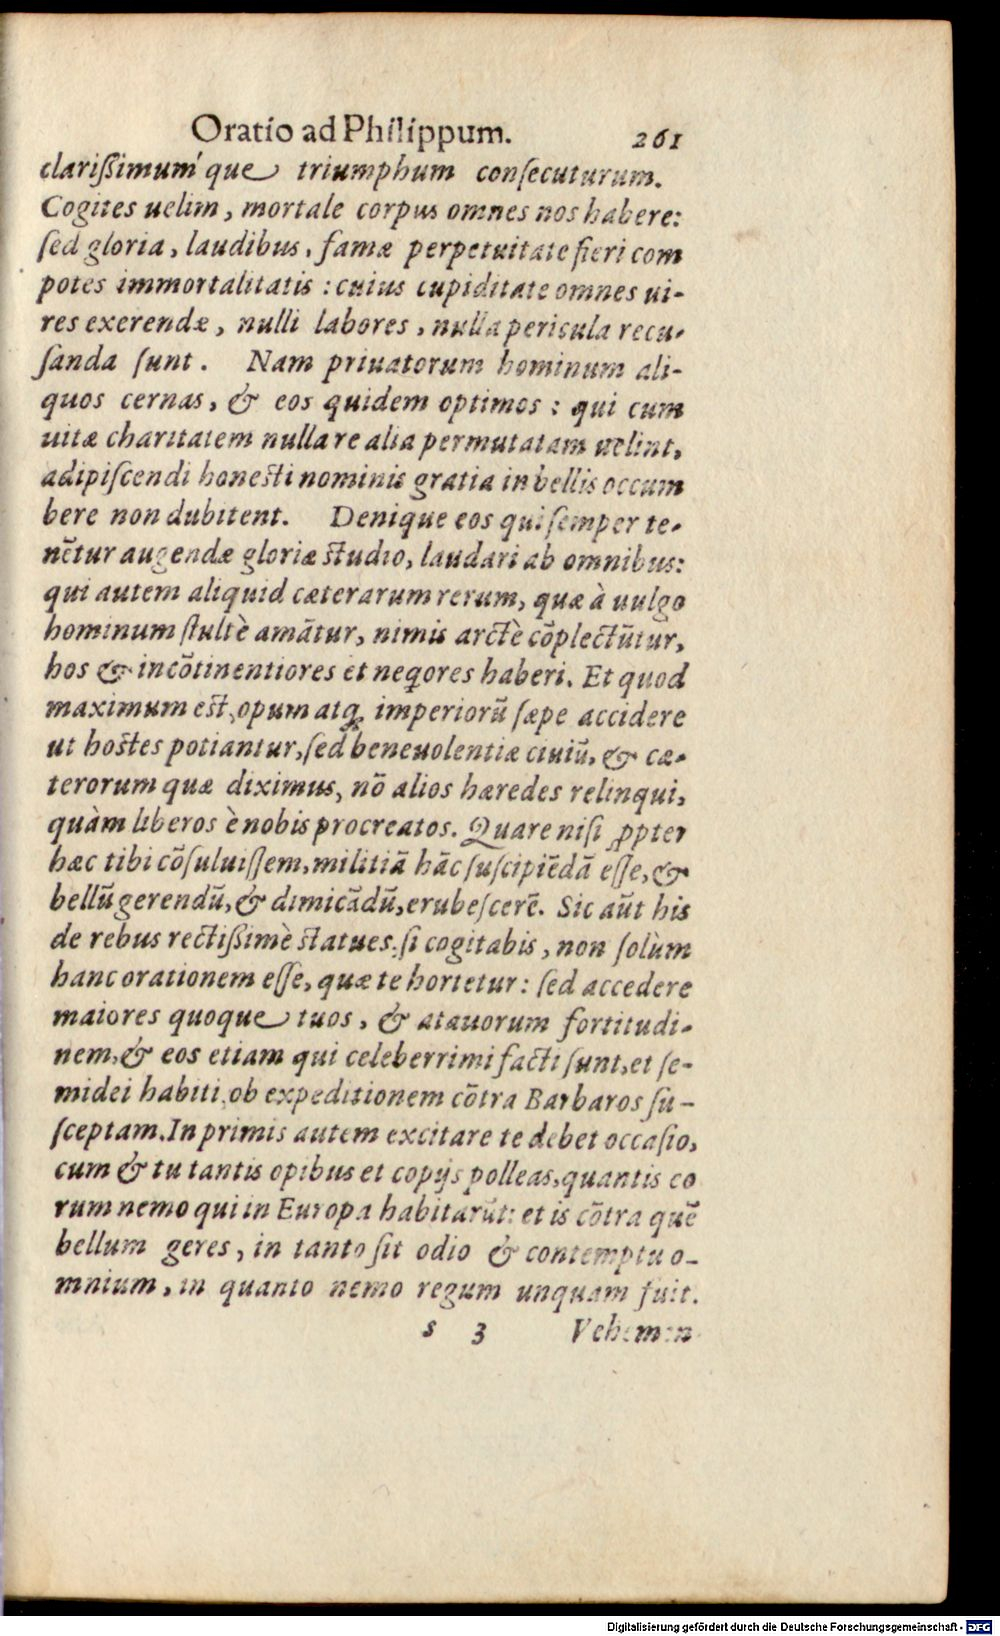 Oratio ad Philippum. 261
clariſſimum´que triumphum conſecuturum.
Cogites uelim, mortale corpus omnes nos habere:
ſed gloria, laudibus, famæ perpetuitate fieri com
potes immortalitatis : cuius cupiditate omnes ui-
res exerendæ, nulli labores, nulla pericula recu-
ſanda ſunt. Nam priuatorum hominum ali-
quos cernas, & eos quidem optimos : qui cum
uitæ charitatem nulla re alia permutatam uelint,
adipiſcendi honeſti nominis gratia in bellis occum
bere non dubitent. Denique eos qui ſemper te-
nẽtur augendæ gloriæ ſtudio, laudari ab omnibus:
qui autem aliquid cæterarum rerum, quæ à uulgo
hominum ſtultè amãtur, nimis arctè cõplectũtur,
hos & incõtinentiores et neqores haberi. Et quod
maximum eſt, opum atq; imperiorũ ſæpe accidere
ut hoſtes potiantur, ſed beneuolentiæ ciuiũ, & cæ-
terorum quæ diximus, nõ alios hæredes relinqui,
quàm liberos è nobis procreatos. Quare niſi ꝓpter
hæc tibi cõſuluiſſem, militiã hãc ſuſcipiẽdã eſſe, &
bellũ gerendũ, & dimicãdũ, erubeſcerẽ. Sic aũt his
de rebus rectiſſimè ſtatues, ſi cogitabis, non ſolùm
hanc orationem eſſe, quæ te hortetur: ſed accedere
maiores quoque tuos, & atauorum fortitudi-
nem, & eos etiam qui celeberrimi facti ſunt, et ſe-
midei habiti, ob expeditionem cõtra Barbaros ſu-
ſceptam. In primis autem excitare te debet occaſio,
cum & tu tantis opibus et copijs polleas, quantis eo
rum nemo qui in Europa habitarũt: et is cõtra quẽ
bellum geres, in tanto ſit odio & contemptu o-
mnium, in quanto nemo regum unquam fuit.
s 3 Vehemen
Digitalisierung gefördert durch die Deutsche Forschungsgemeinschaft - DFG